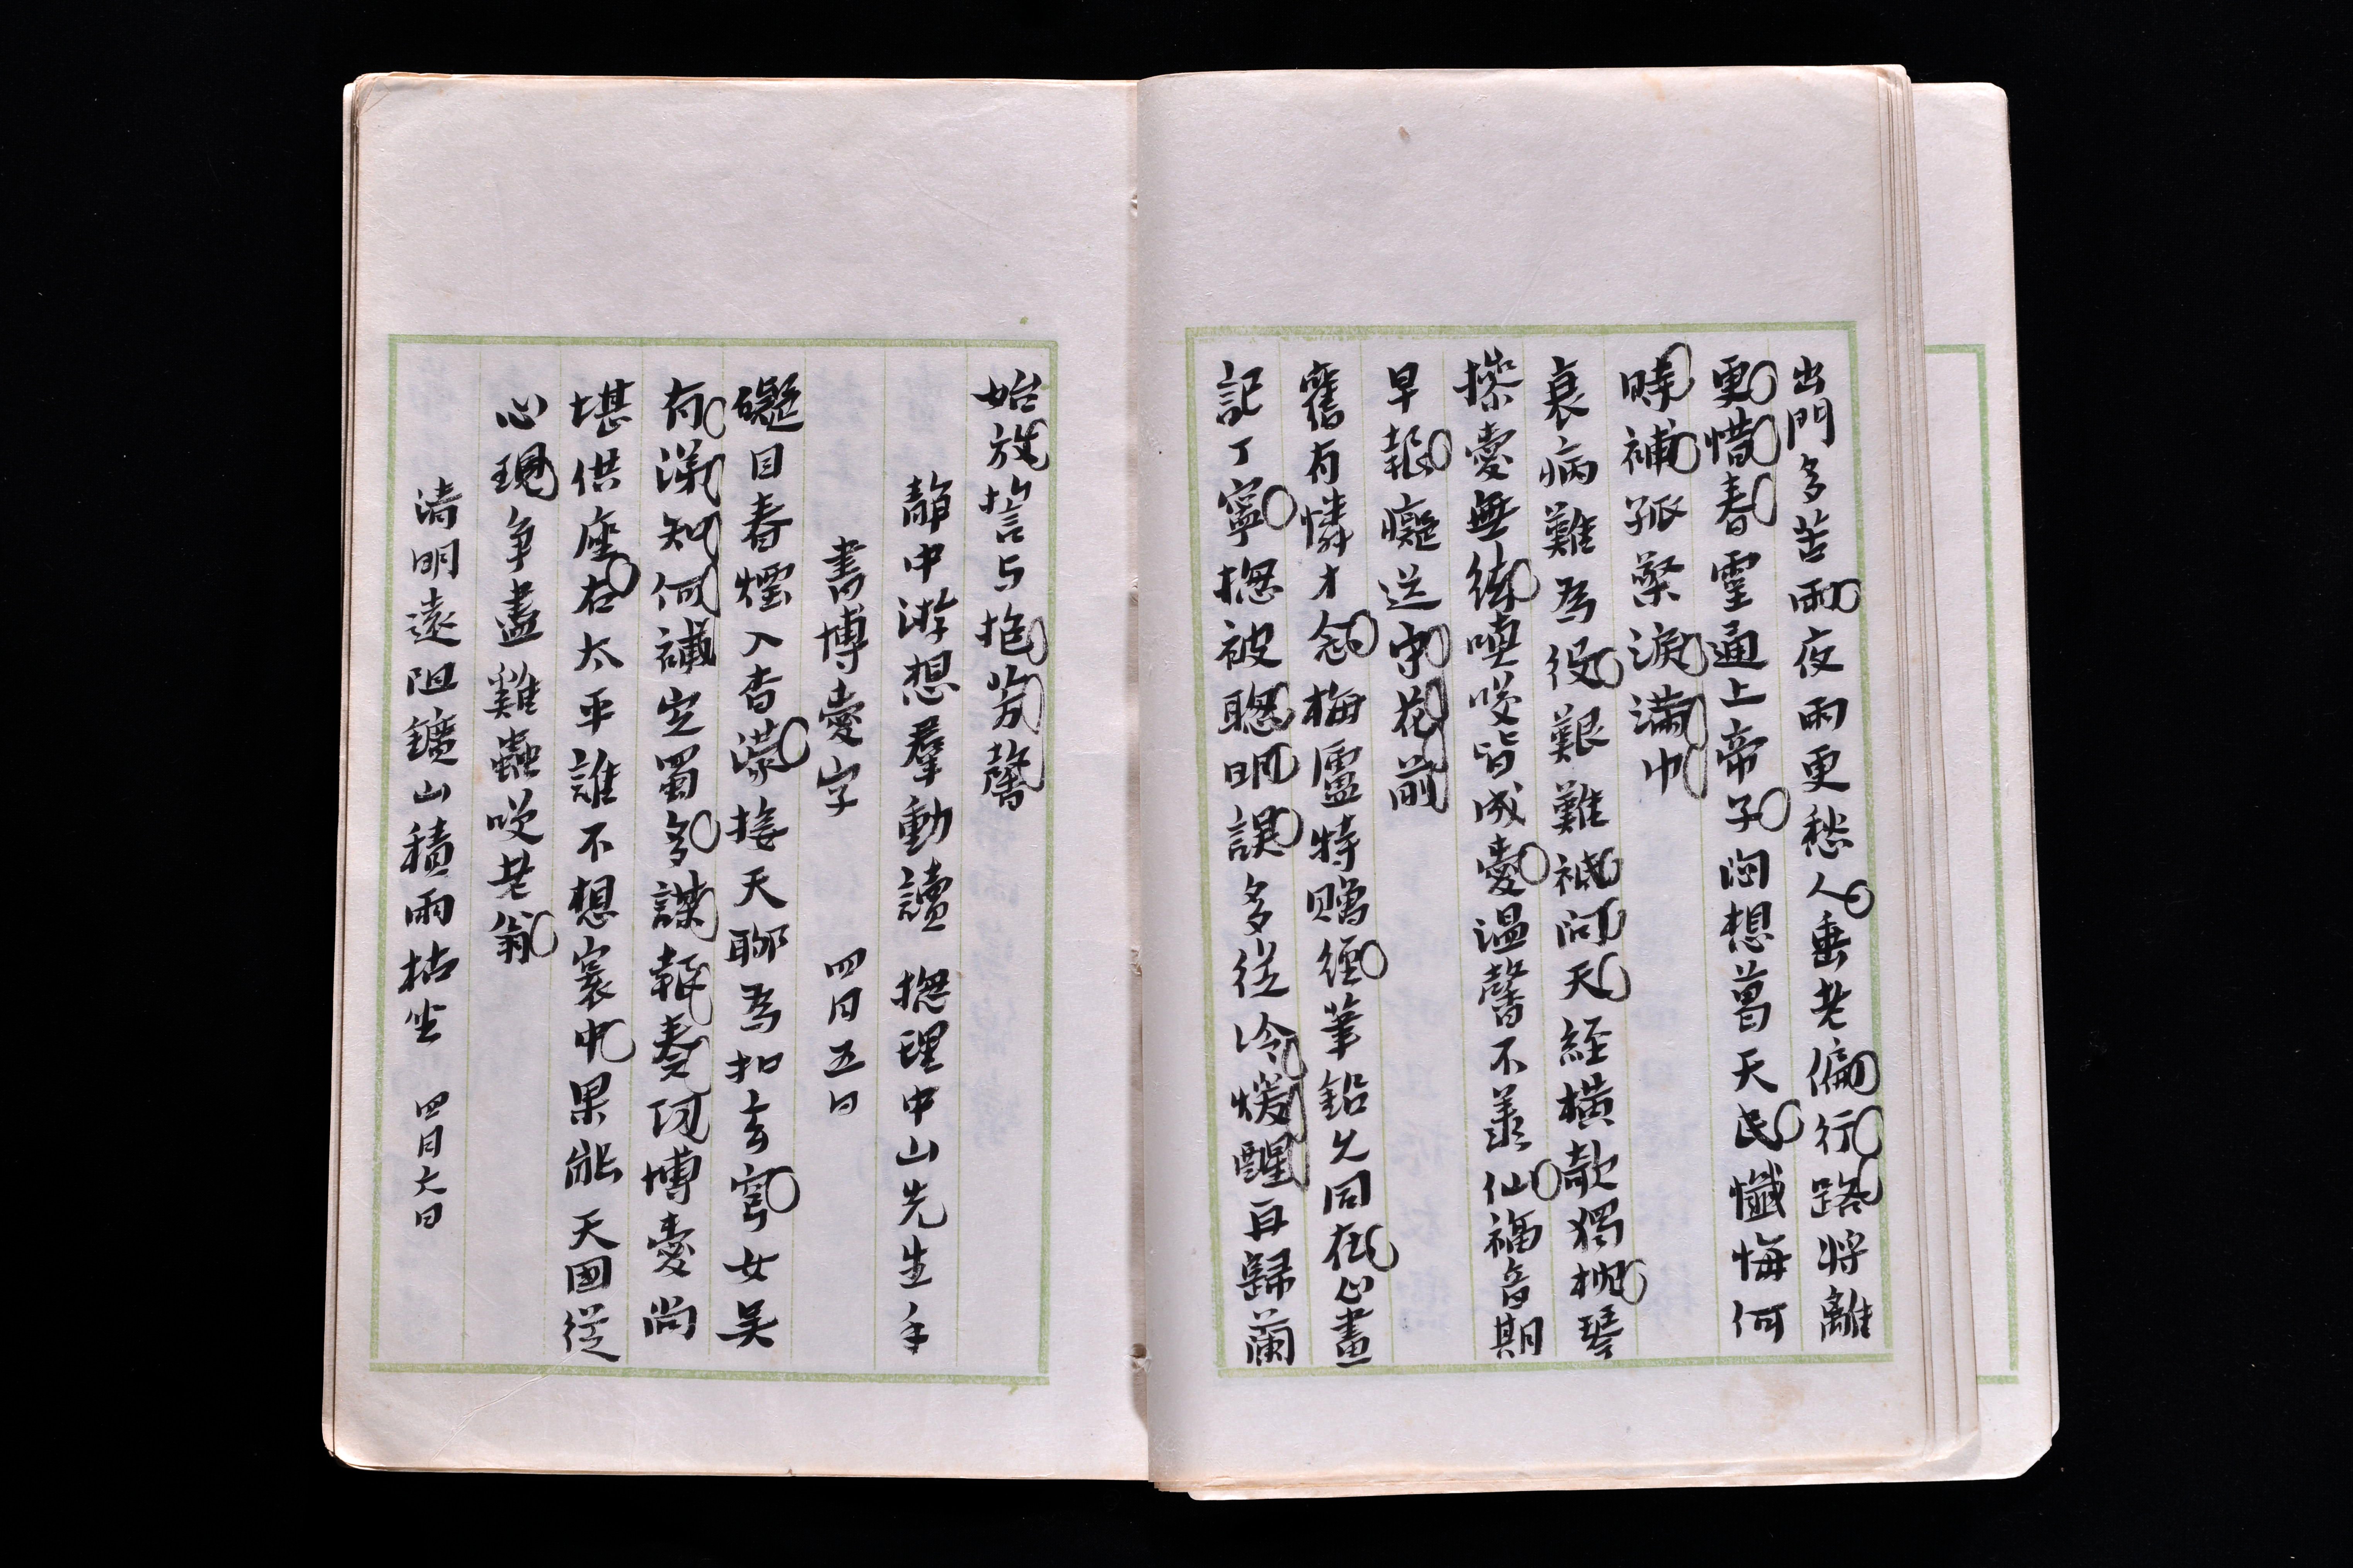 出門多苦雨夜雨更愁人垂老偏行路將離
更惜春靈通上帝子悶想葛天民懺悔何
時補孤檠淚滿巾
衰病難為役艱難祗問天経橫欹獨枕琴
操愛無絃嘆咲皆成愛溫馨不羨仙福音期
早報癡送中花前
舊有憐才念梅廬特贈經筆鉛久同在心畫
記丁寧摠被聰明誤多從冷煖醒再歸蘭
始放誓与抱芳馨
靜中游想羣動讀 撫理中山先生手
書博愛字 四月五日
礙目春煙入杳濛接天聊為扣玄穹女吴
有淚知何讖定蜀多謀報奏何博愛尚
堪供座右太平誰不想寰中果能天國從
心現爭盡雞蟲咲老翁
清明遠阻鑛山積雨枯坐 四月六日